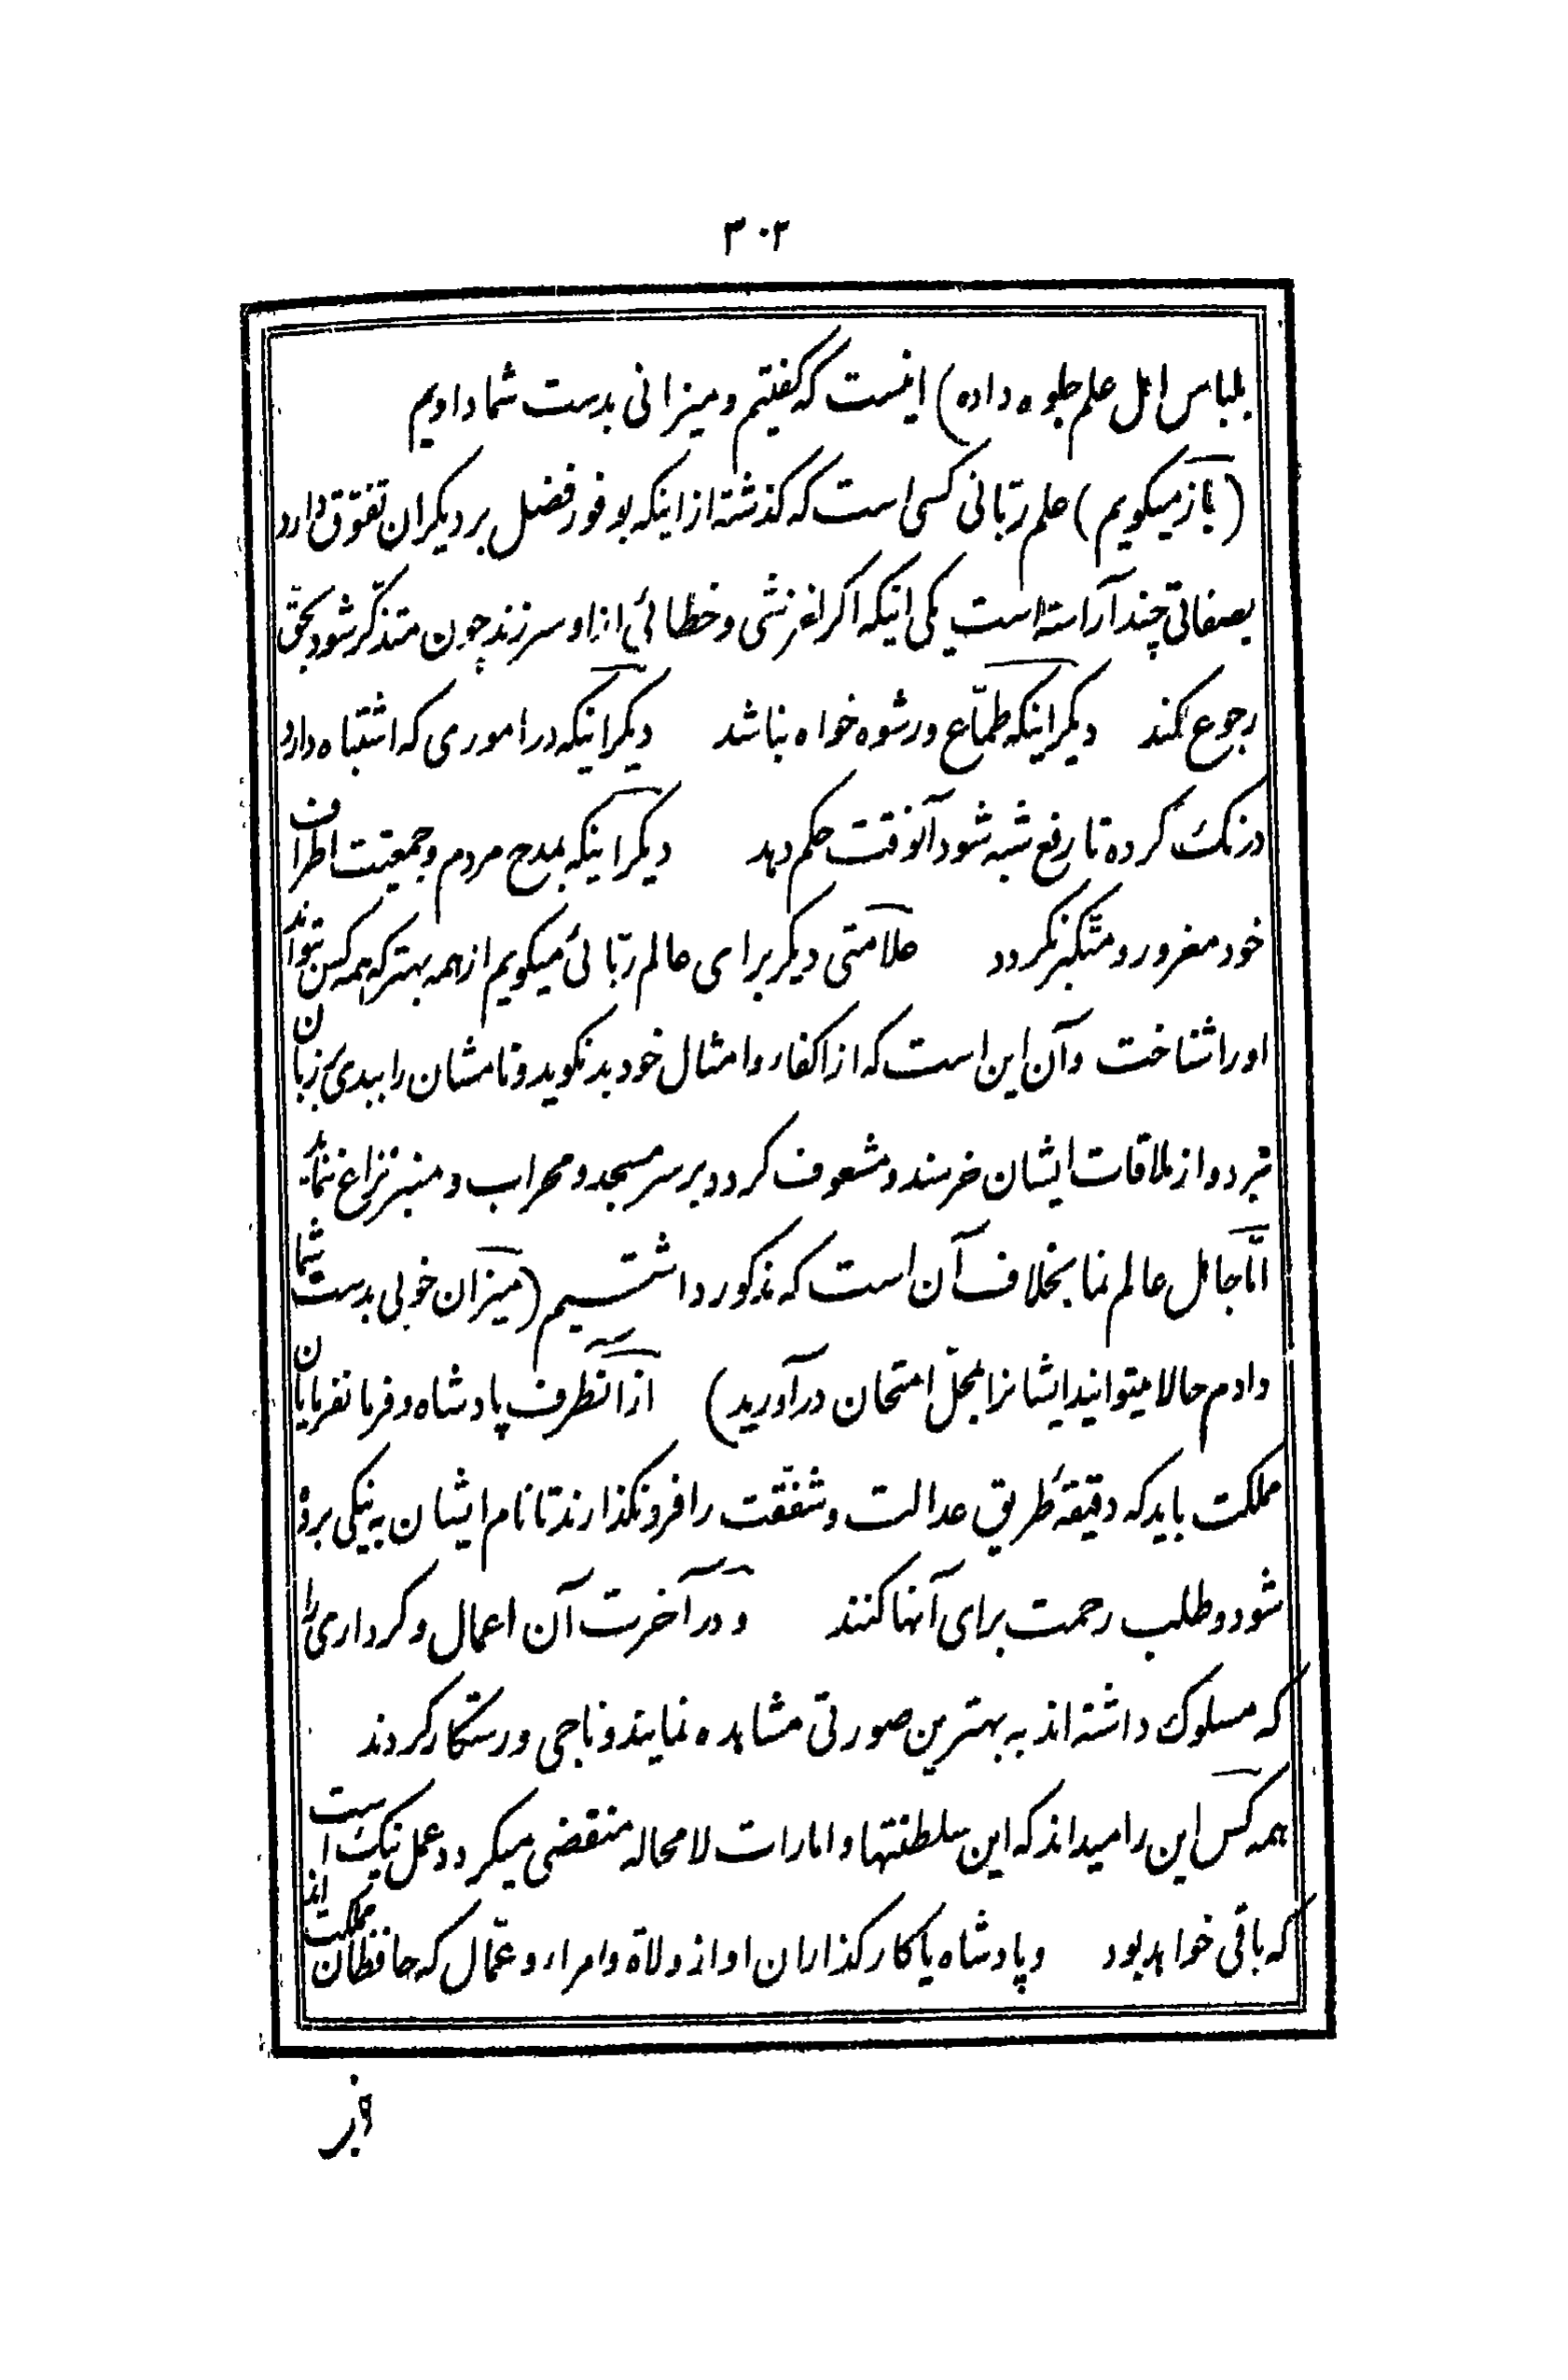 ۳۰۲
بلباس اهل علم جلوه داده) اینست که گفتیم و میزانی بدست شما دادیم
(بازمیگویم) علم ربّانی کسی است که گذشته از اینکه بوفور فضل بر دیگران تفوّق دارد
بصفاتی چند آراسته است یکی اینکه اگر لغزشی و خطائی از او سر زند چون متذکّر شود بحقّ
رجوع کند دیگر اینکه طمّاع و رشوه خواه نباشد دیگر اینکه در اموری که اشتباه دارد
درنگ کرده تا رفع شبه شود آنوقت حکم دهد دیگر اینکه بمدح مردم و جمعیّت اطراف
خود مغرور و متکبّر نگردد علامتی دیگر برای عالم ربّانی میگویم از همه بهتر که همه کس بتواند
او را شناخت و آن این است که از اکفار و امثال خود بد نگوید و نامشان را ببدی بزبان
نبرد و از ملاقات ایشان خرسند و مشعوف گردد بر سر مسجد و محراب و منبر نزاع ننماید
امّا جاهل عالم نما بخلاف آن است که مذکور داشتیم (میزان خوبی بدست شما
دادم حالا میتوانید ایشانرا بمحلّ امتحان درآورید) از آنطرف پادشاه و فرمانفرمایان
مملکت باید که دقیقهٔ طریق عدالت و شفقت را فرو نگذارند تا نام ایشان به نیکی برده
شود و طلب رحمت برای آنها کنند و در آخرت آن اعمال و کرداری را
که مسلوک داشته اند به بهترین صورتی مشاهده نمایند و ناجی و رستگار گردند
همه کس این را میداند که این سلطنتها و امارات لا محاله منقضی میگردد عمل نیک است
که باقی خواهد بود و پادشاه یا کارگذاران او از ولاة و امراء و عمّال که حافظان مملکت اند